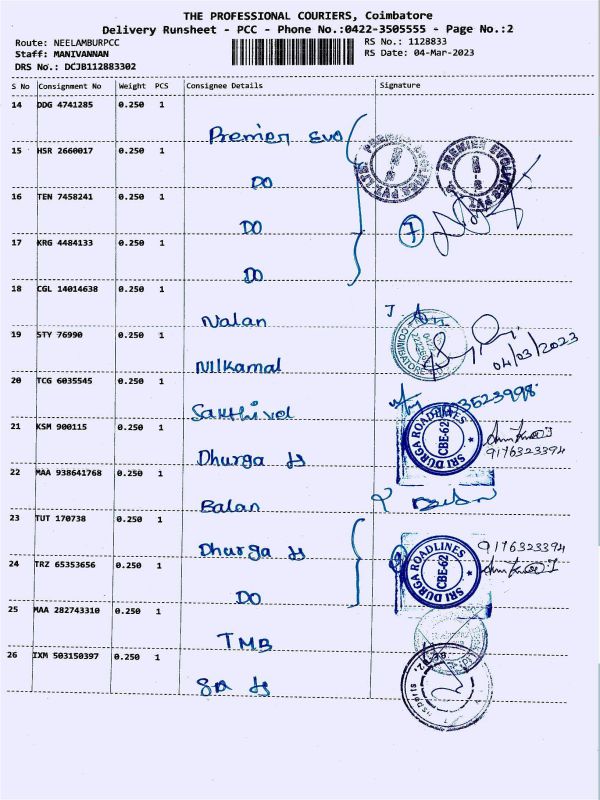 THE PROFESSIONAL COURIERS, Coimbatore
Delivery Runsheet - PCC - Phone No.:0422-3505555 - Page No.:2
Route: NEELAMBURPCC RS No.: 1128833
Staff: MANIVANNAN RS Date: 04-Mar-2023
DRS No.: DCJB112883302
S No Consignment No Weight PCS Consignee Details Signature
14 DDG 4741285 0.250 1 Premier Evo
PREMIER EVOLVICS PVT. LTD.
PREMIER EVOLVICS PVT.
15 HSR 2660017 0.250 1 DO
16 TEN 7458241 0.250 1 DO
7
17 KRG 4484133 0.250 1 DO
18 CGL 14014638 0.250 1 Nalan
19 STY 76990 0.250 1 Nilkamal
COIMBATORE
04/03/2023
20 TCG 6035545 0.250 1 Sakthivel
21 KSM 900115 0.250 1 Dhurga
SRI DURGA ROADLINES
CBE-62
9176323394
22 MAA 938641768 0.250 1 Balan
Balan
23 TUT 170738 0.250 1 Dhurga
SRI DURGA ROADLINES
CBE-62
9176323394
24 TRZ 65353656 0.250 1 DO
25 MAA 282743310 0.250 1 TMB
26 IXM 503150397 0.250 1